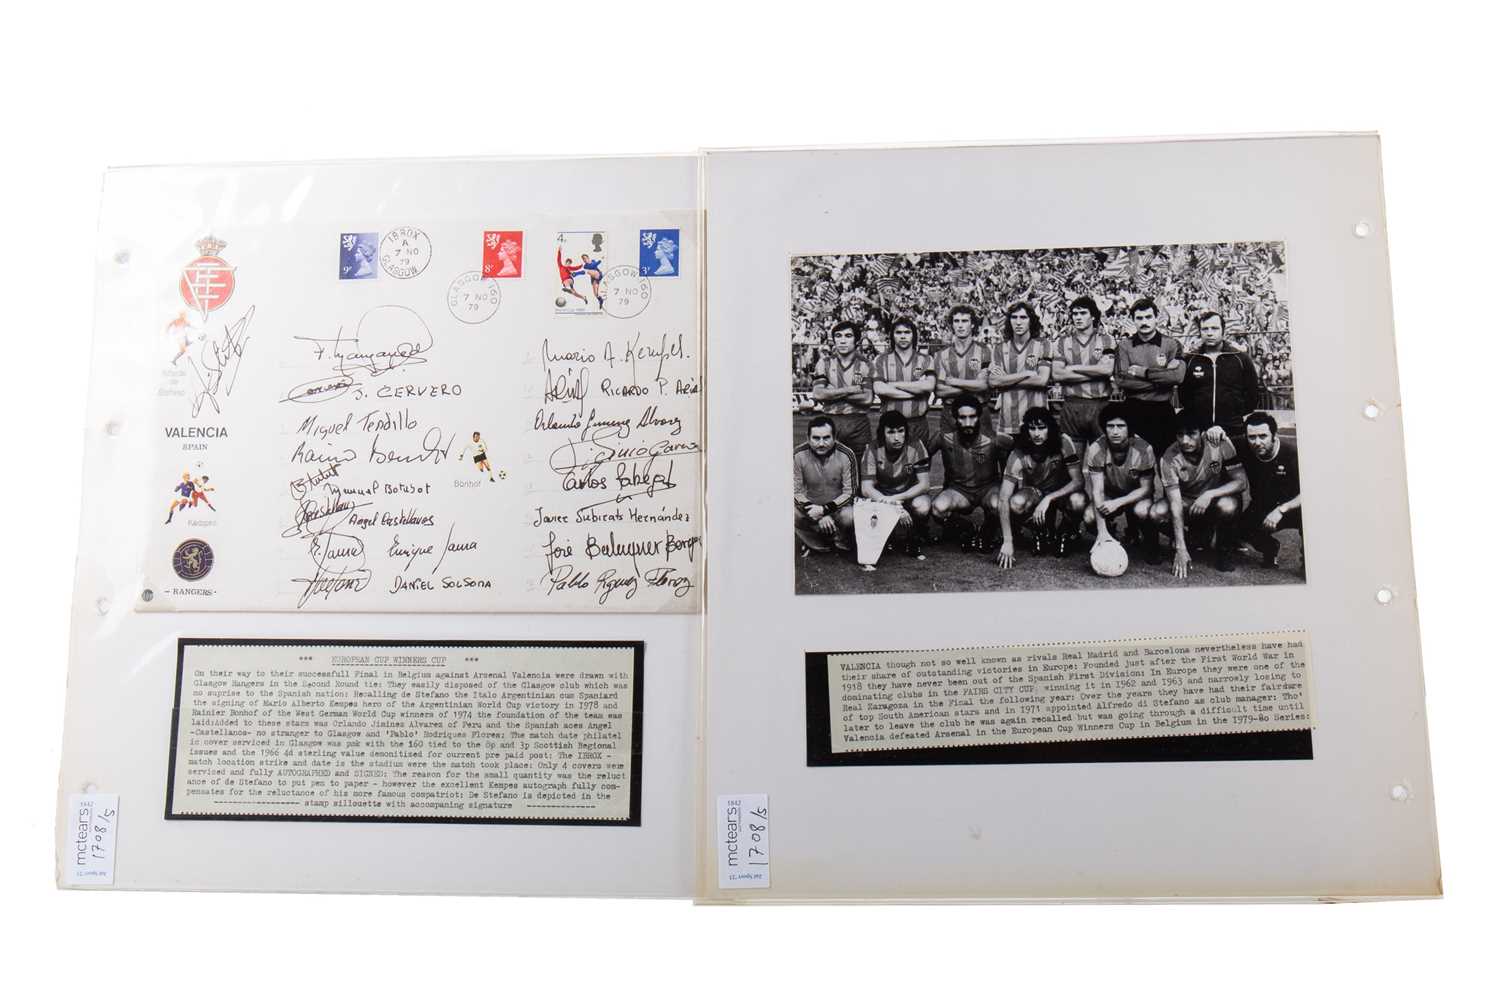 IBROX
A
7 NO
79
GLASGOW
9p
8p
4D
3p
GLASGOW 160
7 NO
79
GLASGOW 160
7 NO
79
World Cup 1966
Alfredo
de
Stefano
VALENCIA
SPAIN
Kempes
- RANGERS -
J. CERVERO
Miguel Tendillo
Rainer Bonhof
Bonhof
Manuel Botubot
Angel Castellanos
Enrique Saura
DANIEL SOLSONA
Mario A. Kempes.
RICARDO P. ARIAS
Orlando Jimenez Alvarez
Javier Subirats Hernández
José
Pablo
*** EUROPEAN CUP WINNERS CUP ***
On their way to their successfull Final in Belgium against Arsenal Valencia were drawn with
Glasgow Rangers in the Second Round tie: They easily disposed of the Glasgow club which was
no suprise to the Spanish nation: Recalling de Stefano the Italo Argentinian cum Spaniard
the signing of Mario Alberto Kempes hero of the Argentinian World Cup victory in 1978 and
Rainier Bonhof of the West German World Cup winners of 1974 the foundation of the team was
laid:Added to these stars was Orlando Jimines Alvarez of Peru and the Spanish aces Angel
-Castellanos- no stranger to Glasgow and 'Pablo' Rodriques Flores: The match date philatel
ic cover serviced in Glasgow was pmk with the 160 tied to the 8p and 3p Scottish Regional
issues and the 1966 4d sterling value demonitised for current pre paid post: The IBROX -
match location strike and date is the stadium were the match took place: Only 4 covers were
serviced and fully AUTOGRAPHED and SIGNED: The reason for the small quantity was the reluct
ance of de Stefano to put pen to paper - however the excellent Kempes autograph fully com-
pensates for the reluctance of his more famous compatriot: De Stefano is depicted in the
------------------ stamp sillouette with accompaning signature --------------
1842
mctears
1708/5
VALENCIA though not so well known as rivals Real Madrid and Barcelona nevertheless have had
their share of outstanding victories in Europe: Founded just after the First World War in
1918 they have never been out of the Spanish First Division: In Europe they were one of the
dominating clubs in the FAIRS CITY CUP; winning it in 1962 and 1963 and narrowly losing to
Real Zaragoza in the Final the following year: Over the years they have had their fairdure
of top South American stars and in 1971 appointed Alfredo di Stefano as club manager: Tho'
later to leave the club he was again recalled but was going through a difficult time until
Valencia defeated Arsenal in the European Cup Winners Cup in Belgium in the 1979-80 Series:
1842
mctears
1708/5